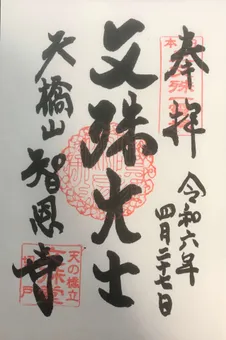 奉拝
令和六年
四月二十七日
文殊大士
天橋山
智恩寺
天の橋立
文殊堂